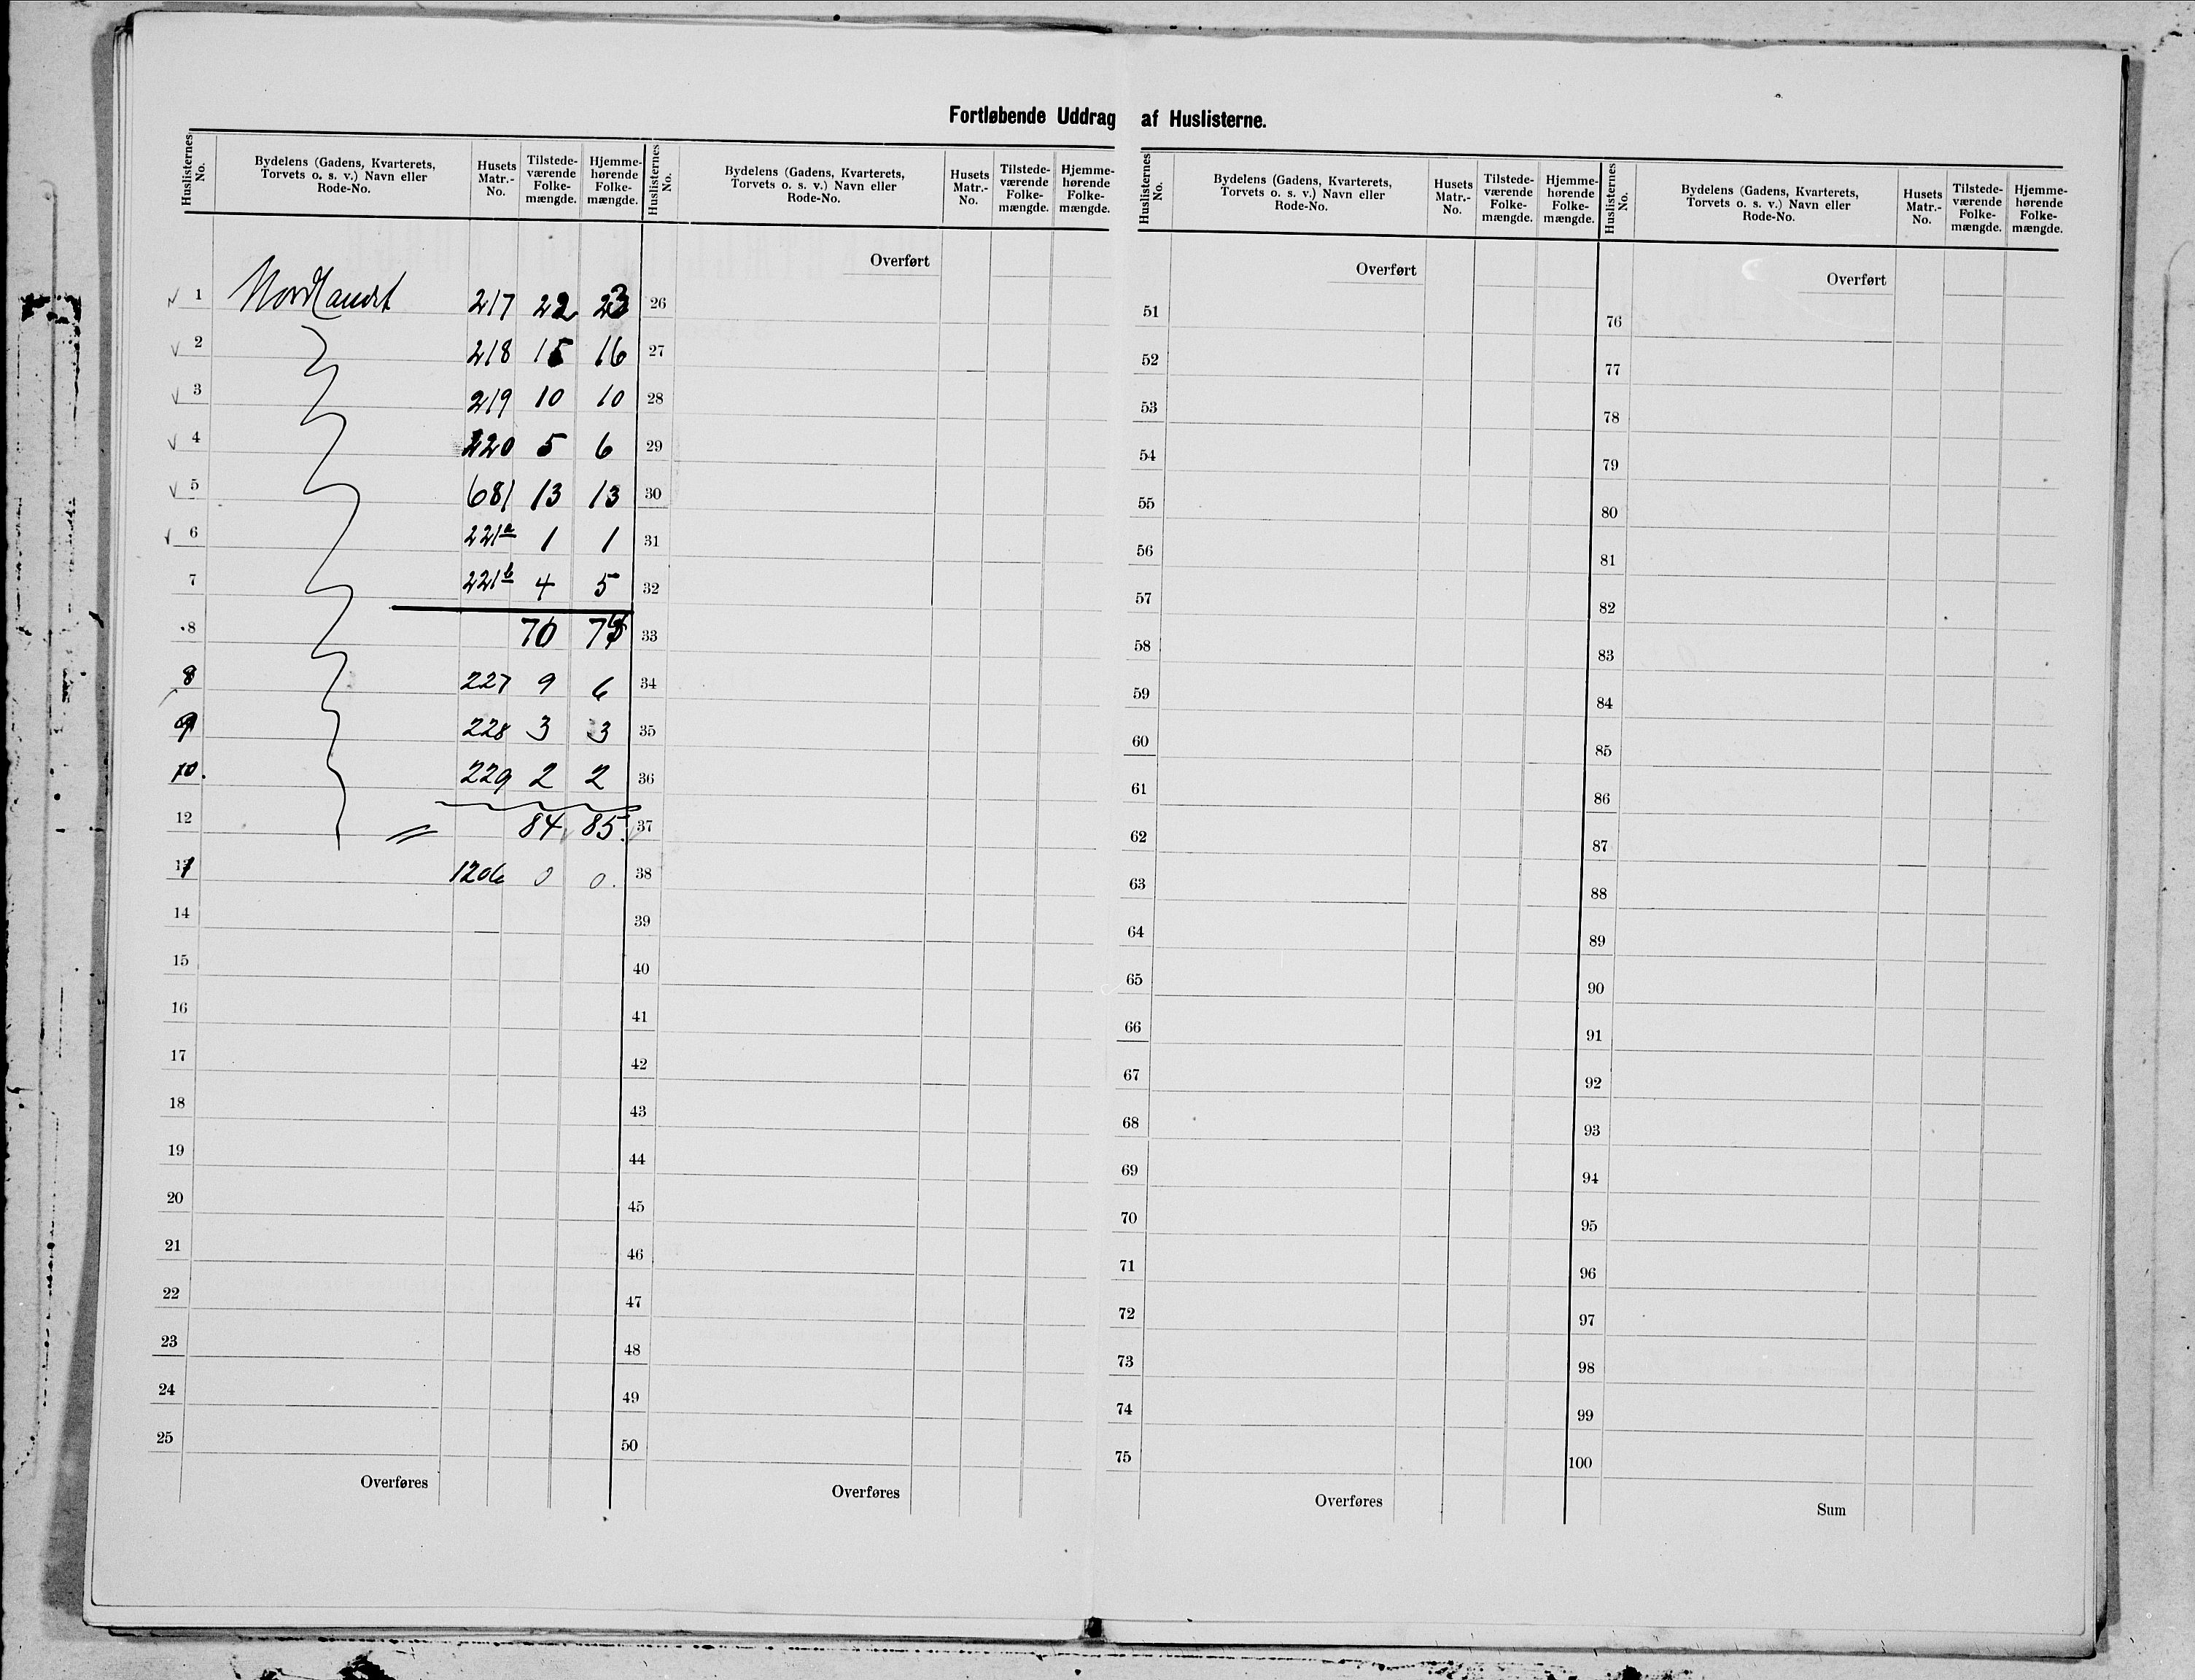 Fortløbende Uddrag af Huslisterne.
Huslisternes No. Bydelens (Gadens, Kvarterets, Torvets o. s. v.) Navn eller Rode-No. Husets Matr.-No. Tilstede-værende Folke-mængde. Hjemme-hørende Folke-mængde.
1 Nordlandet 217 22 23
2 218 15 16
3 219 10 10
4 220 5 6
5 681 13 13
6 221a 1 1
7 221b 4 5
8 70
8 227 9 6
9 228 3 3
10. 229 2 2
12 84 85.
1206 0 0.
14
15
16
17
18
19
20
21
22
23
24
25
Overføres
Huslisternes No. Bydelens (Gadens, Kvarterets, Torvets o. s. v.) Navn eller Rode-No. Husets Matr.-No. Tilstede-værende Folke-mængde. Hjemme-hørende Folke-mængde.
Overført
26
27
28
29
30
31
32
33
34
35
36
37
38
39
40
41
42
43
44
45
46
47
48
49
50
Overføres
Huslisternes No. Bydelens (Gadens, Kvarterets, Torvets o. s. v.) Navn eller Rode-No. Husets Matr.-No. Tilstede-værende Folke-mængde. Hjemme-hørende Folke-mængde.
Overført
51
52
53
54
55
56
57
58
59
60
61
62
63
64
65
66
67
68
69
70
71
72
73
74
75
Overføres
Huslisternes No. Bydelens (Gadens, Kvarterets, Torvets o. s. v.) Navn eller Rode-No. Husets Matr.-No. Tilstede-værende Folke-mængde. Hjemme-hørende Folke-mængde.
Overført
76
77
78
79
80
81
82
83
84
85
86
87
88
89
90
91
92
93
94
95
96
97
98
99
100
Sum